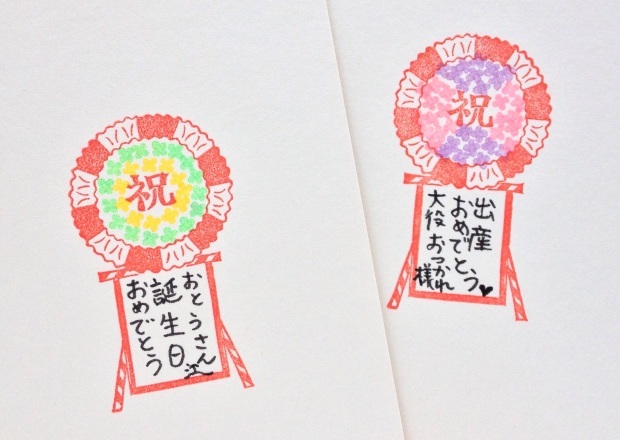 祝
おとうさん江
誕生日
おめでとう
祝
出産
おめでとう♥
大役おつかれ様